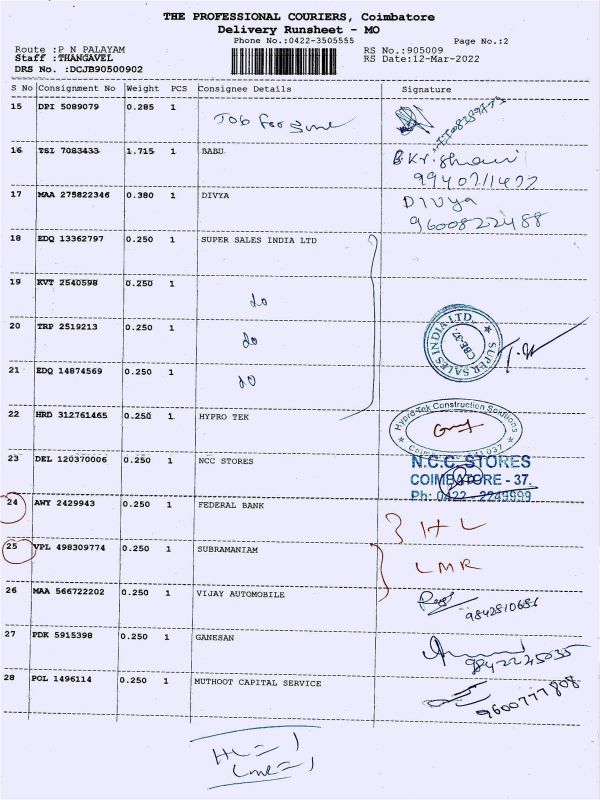 THE PROFESSIONAL COURIERS, Coimbatore
Delivery Runsheet - MO
Phone No.:0422-3505555
Page No.:2
Route :P N PALAYAM
RS No.:905009
Staff :THANGAVEL
RS Date:12-Mar-2022
DRS No. :DCJB90500902
S No Consignment No Weight PCS Consignee Details Signature
15 DPI 5089079 0.285 1
16 TSI 7083433 1.715 1 BABU
9940711472
17 MAA 275822346 0.380 1 DIVYA
Divya
9600822488
18 EDQ 13362797 0.250 1 SUPER SALES INDIA LTD
19 KVT 2540598 0.250 1 do
20 TRP 2519213 0.250 1 do
SUPER SALES INDIA LTD.
CBE-37.
21 EDQ 14874569 0.250 1 do
22 HRD 312761465 0.250 1 HYPRO TEK
Hypro-Tek Construction Solutions
23 DEL 120370006 0.250 1 NCC STORES
N.C.C. STORES
COIMBATORE - 37.
Ph: 0422 - 2249999
24 AWY 2429943 0.250 1 FEDERAL BANK
HL
25 VPL 498309774 0.250 1 SUBRAMANIAM
LMR
26 MAA 566722202 0.250 1 VIJAY AUTOMOBILE
9842810686
27 PDK 5915398 0.250 1 GANESAN
9842245035
28 POL 1496114 0.250 1 MUTHOOT CAPITAL SERVICE
9600777808
HL = 1
LMR = 1